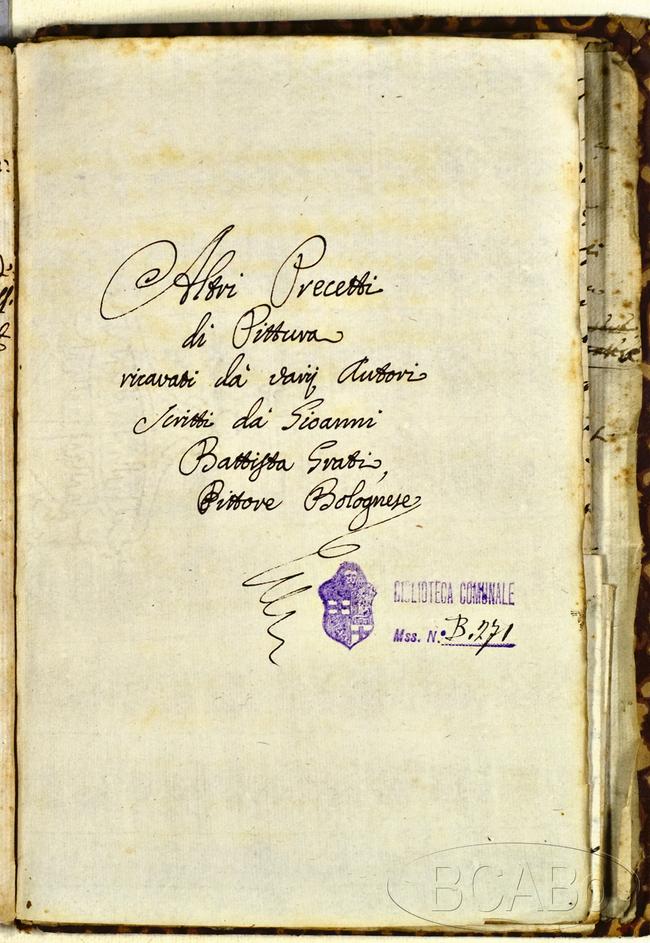 Altri Precetti
di Pittura
ricavati dà varij Autori
scritti dà Gioanni
Battista Grati,
Pittore Bolognese
BIBLIOTECA COMUNALE
Mss. N. B.271
BCAB